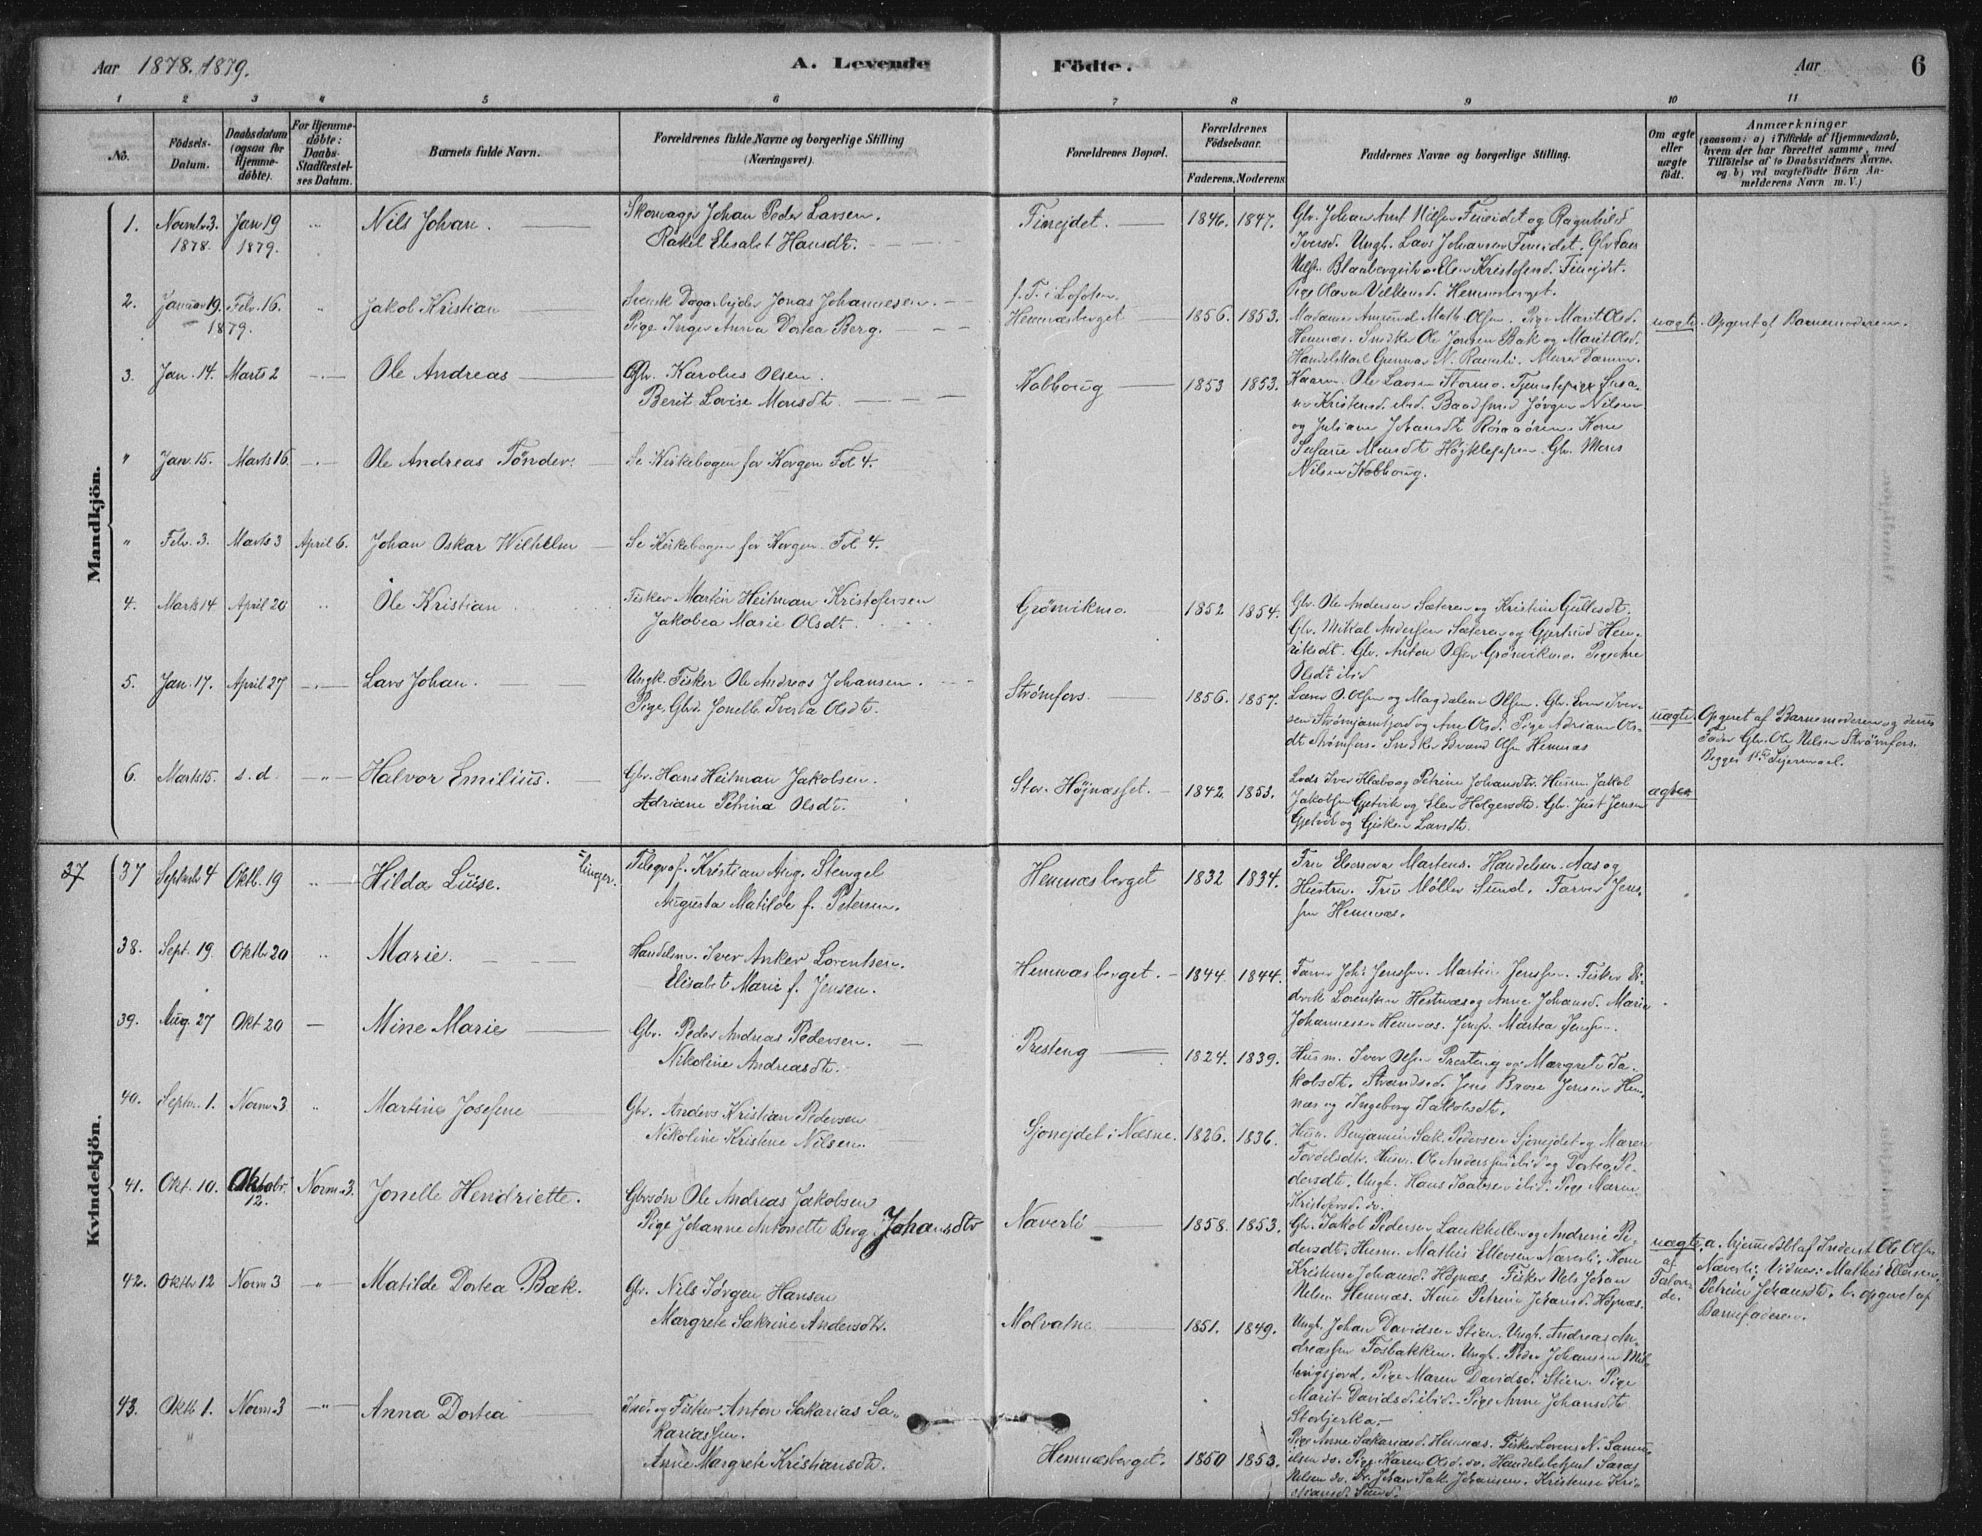 Aar 1878. 1879.
A. Levende
Födte.
Aar
6
1 2 3 4 5 6 7 8 9 10 11
No.
Födsels-Datum.
Daabsdatum (ogsaa for Hjemme-döbte).
For Hjemme-döbte: Daabs-Stadfæstel-ses Datum.
Barnets fulde Navn.
Forældrenes fulde Navne og borgerlige Stilling (Næringsvei).
Forældrenes Bopæl.
Forældrenes Födselsaar.
Faderens. Moderens.
Faddernes Navne og borgerlige Stilling.
Om ægte eller uægte födt.
Anmærkninger
(saasom: a) i Tilfælde af Hjemmedaab, hvem der har forrettet samme, med Tilföielse af to Daabsvidners Navne, og b) ved uægtefödte Börn An-melderens Navn m. V.)
Mandkjön.
1. Novmb. 3. 1878. Jan 19 1879. Nils Johan.
Johan Peder Larsen.
Rakel Elisabet Hansdt.
Finejdet. 1846. 1847.
Glv. Johan Arnt Nilsen Fineidet og Ragnhild
Iversd. Ungk. Lars Johansen Fineidet.
2. Januar 19. 1879. Febr. 16. Jakob Kristian
Svensk Dagarbejder Jonas Johannesen.
Pige Inger Anna Dortea Berg.
f. T. i Lofoten.
Hemnæsberget 1856. 1853.
Pige Marit Olsd.
Hemnæs. Snedker Ole Jonsen Bak og Marit Olsd.
uægte. Opgivet af Barnemoderen.
3. Jan. 14. Marts 2 Ole Andreas
Glv. Karolius Olsen.
Berit Lovise Monsdt.
Kobboug 1853 1853.
Ole Larsen Stormo. Tjenestepige Susa-
ne Kristensd. ibid. Jørgen Nilsen
og Juliane Johansdt. Kone
Glv. Mons
Nilsen Kobboug.
" Jan. 15. Marts 16 Ole Andreas Tönder. Se Kirkebogen for Korgen Fol 4.
" Febr. 3. Marts 3 April 6. Johan Oskar Wilhelm Se Kirkebogen for Korgen. Fol 4.
4. Marts 14 April 20 Ole Kristian
Fisker Martin Heitman Kristofersen
Jakobea Marie Olsdt.
Grönvikmo. 1852 1854.
Glv. Ole Andersen Sæteren og Kristine Gullesdt.
Glv. Mikal Andersen Sæteren og Gjertrud Hen-
riksdt. Glv. Anton Olsen Grönvikmo. Pige Ane
Olsdt ibid
5. Jan. 17. April 27 Lars Johan.
Ungk. Fisker Ole Andreas Johansen.
Pige, Glvd. Jonelle Iverta Olsdt.
Strömfors. 1856. 1857.
Lærer O. Olsen og Magdalena Olsen. Glv. Iver Iver-
sen Strömjamfjord og Ane Olsd. Pige Adriane Ols-
dt. Strömfors. Snedker Olsen Hemnæs
uægte. Opgivet af Barnemoderen og dennes
Fader Glv. Ole Nilsen Strömfors.
Begges 1ste Lejermaal.
6. Marts 15. s. d. Halvor Emilius.
Glv. Hans Heitman Jakobsen.
Adriane Petrina Olsdt.
Stor-Höjnæsset. 1842. 1853.
Lods Iver Klæbo og Petrine Johansdt. Husm. Jakob
Jakobsen Gjetvik og Elen Holgersdt. Glv. Just Jensen
Gjetvik og Gisken Larsdt.
Kvindekjön.
37 37 Septmb 4 Oktb. 19 Hilda Luise.
Telegraf. Kristian Aug. Stengel
Augusta Matilde f. Petersen.
Hemnæsberget 1832 1834.
Fru Eleonora Martens. Handelsm. Aas og
Hustru. Fru Møller Sund. Farver Jens-
sen Hemnæs.
38. Sept. 19 Oktb 20 Marie.
Handelsm. Iver Anker Lorentsen.
Elisabet Marie f. Jensen.
Hemnæsberget. 1844 1844.
Farver Joh. Jenssen. Martin Jenssen. Fisker Di-
drik Lorentsen Hestnæs og Anne Johansd. Marie
Johannessen Hemnæs. Jomf. Martea Jenssen.
39. Aug. 27 Okt 20 Mine Marie
Glv. Peder Andreas Pedersen.
Nikoline Andreasdt.
Presteng 1824. 1839.
Husm. Iver Olsen Presteng og Margrete Ja-
kobsdt. Strandsd. Jens Brose Jensen Hem-
næs og Ingeborg Jakobsdt.
40. Septr. 1. Novm. 3 Martine Josefine
Glv. Anders Kristian Pedersen
Nikoline Kristine Nilsen.
Sjonejdet i Næsne. 1826. 1836.
Husm. Benjamin Sak. Pedersen Sjonejdet og Maren
Husm. Ole Anderssen ibid og Dortea Pe-
dersdt. Ungk. Hans Isaksen ibid. Pige Maren
Kristofersd. do.
41. Okt. 10. Oktobr. 12. Novm. 3. Jonelle Hendriette.
Glvssön Ole Andreas Jakobsen
Pige Johanne Antonette Berg Johansdtr
Naverli 1858. 1853.
Glv. Jakob Pedersen Laukhellen og Andrine Pe-
dersdt. Husm. Mathis Ellevsen Naverli. Kone
Kristense Johansd. Högnæs. Fisker Nils Johan
Nelsen Hemnæs. Kone Petrine Johansd. Högnæs.
uægte
a. hjemmedöbt af Inderst Ole Olsen
Naverli. Vidner: Mathis Ellevsen,
Petrine Johansdt. b. opgivet af
Barnefaderen.
42. Oktbr 12 Novm 3 Matilde Dortea Bæk.
Glv. Nils Jörgen Hansen
Margrete Sakrine Andersdt.
Molvatne 1851. 1849.
Ungk. Johan Davidsen Stien. Ungk. Andreas An-
dreassen Fosbakken. Ungk. Peder Johansen
Pige Maren Davidsd. Stien. Pige
Marit Davidsd. ibid. Pige Anne Johansdt
Storbjerka.
43. Oktb 1. Novm 3 Anna Dortea
Inds. og Fisker Anton Sakarias Sa-
kariassen.
Anne Margrete Kristiansdt.
Hemnæsberget. 1850 1853.
Pige Anne Sakariasd. Hemnæs. Fisker Lorens N. Samu-
elsen do. Pige Karen Olsd. do. Handelsbetjent
Nilsen do. Johan Sak. Johansen. Kristense Kri-
stiansd. Sund.